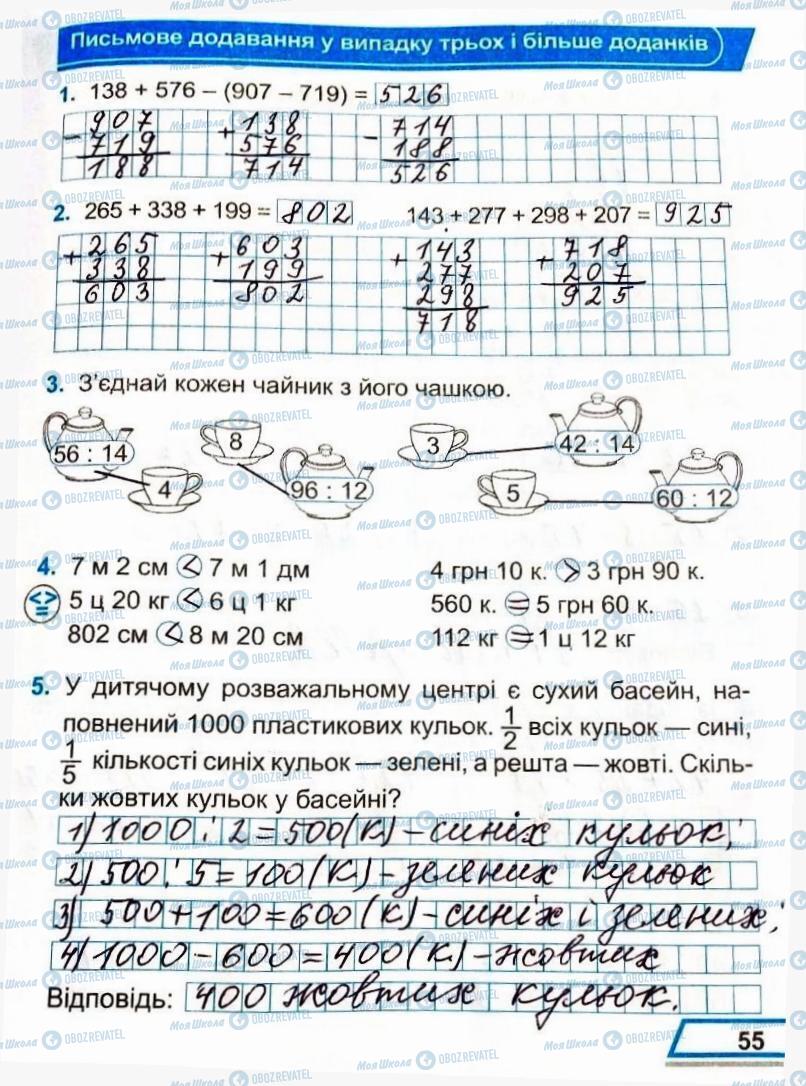 Письмове додавання у випадку трьох і більше доданків
1. 138 + 576 – (907 – 719) = 526
907 138 714
– 719 + 576 – 188
188 714 526
2. 265 + 338 + 199 = 802 143 + 277 + 298 + 207 = 925
+ 265 + 603 + 143 + 718
338 199 277 207
603 802 298 925
718
3. З’єднай кожен чайник з його чашкою.
56 : 14 8 3 42 : 14
4 96 : 12 5 60 : 12
4. 7 м 2 см < 7 м 1 дм 4 грн 10 к. > 3 грн 90 к.
<>= 5 ц 20 кг < 6 ц 1 кг 560 к. = 5 грн 60 к.
802 см < 8 м 20 см 112 кг = 1 ц 12 кг
5. У дитячому розважальному центрі є сухий басейн, на-
повнений 1000 пластикових кульок. 1/2 всіх кульок — сині,
1/5 кількості синіх кульок — зелені, а решта — жовті. Скіль-
ки жовтих кульок у басейні?
1) 1000 : 2 = 500 (к) – синіх кульок;
2) 500 : 5 = 100 (к) – зелених кульок
3) 500 + 100 = 600 (к) – синіх і зелених;
4) 1000 – 600 = 400 (к) – жовтих
Відповідь: 400 жовтих кульок.
55
Моя Школа OBOZREVATEL